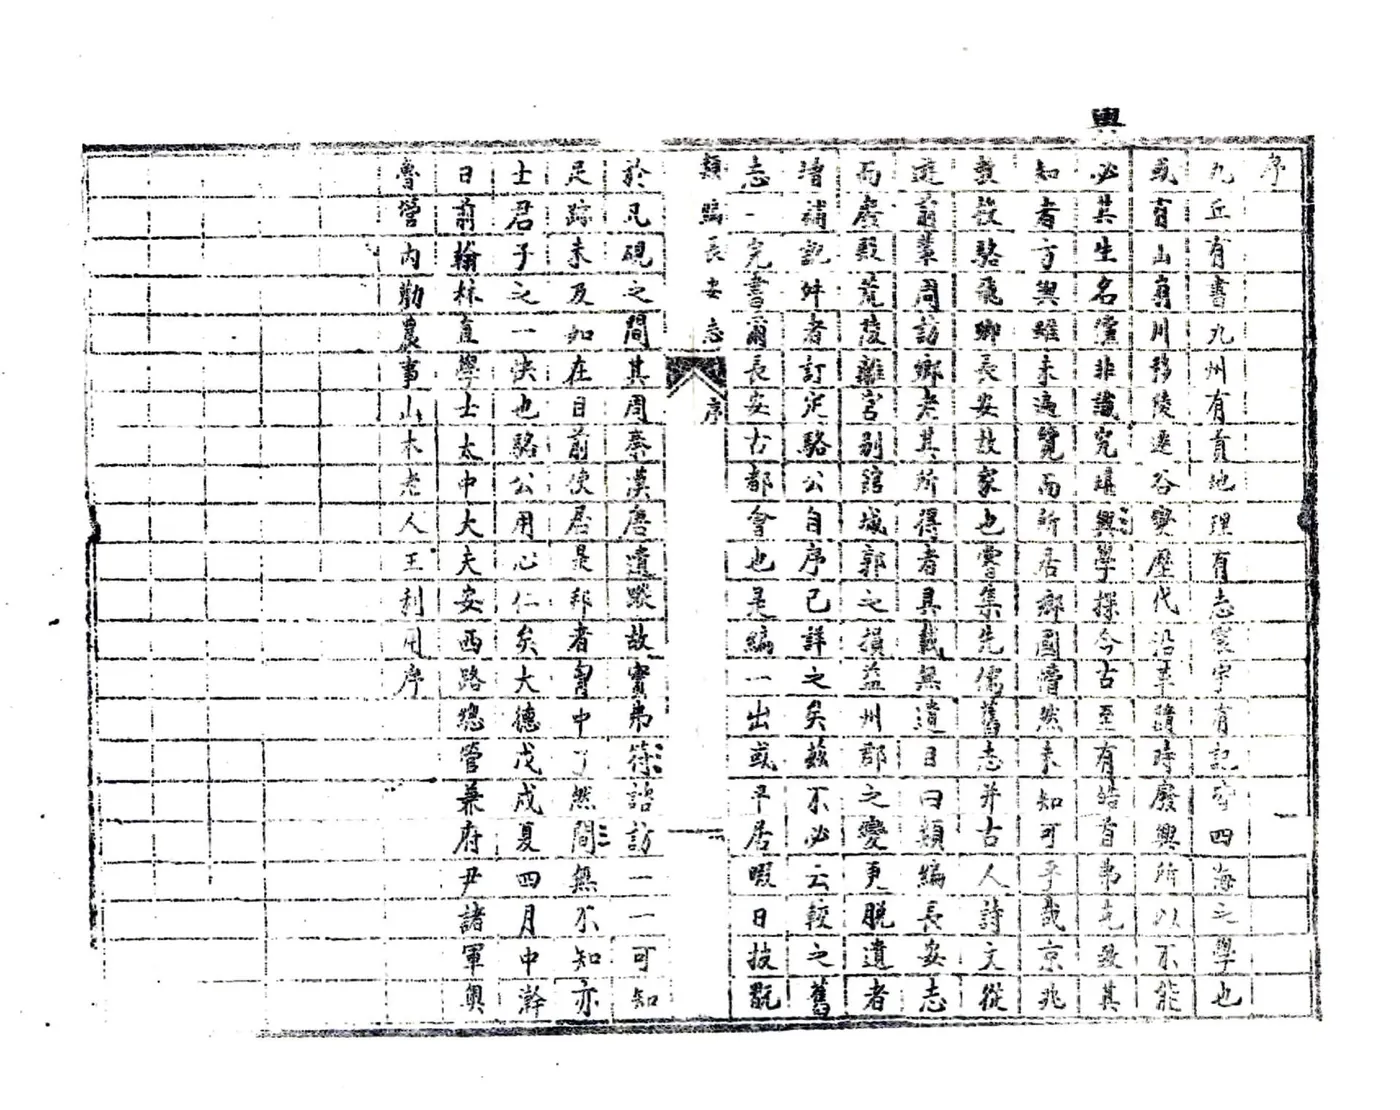 輿
序
九丘有書九州有貢地理有志寰宇有記學四海之學也
或有山肴川移陵遷谷變歷代沿革隨時廢興所以不能
必其生名儻非識究堪輿學探今古至有皓首弗克致其
知者方輿雖未遍覽而所居鄉國懵然未知可乎哉京兆
教授駱飛卿長安故家也嘗集先儒舊志并古人詩文從
遊前輩周訪鄉老其所得者具載無遺目曰類編長安志
而廢殿荒陵離宮別館城郭之損益州郡之變更脫遺者
增補訛舛者訂定駱公自序已詳之矣茲不必云較之舊
志一完書爾長安古都會也是編一出或平居暇日披翫
類編長安志 序
於几硯之間其周秦漢唐遺蹤故實弗待諮訪一一可知
足跡未及如在目前使居是邦者胷中了然間無不知亦
士君子之一快也駱公用心仁矣大德戊戌夏四月中澣
日前翰林直學士太中大夫安西路總管兼府尹諸軍奧
魯營內勸農事山木老人王利用序